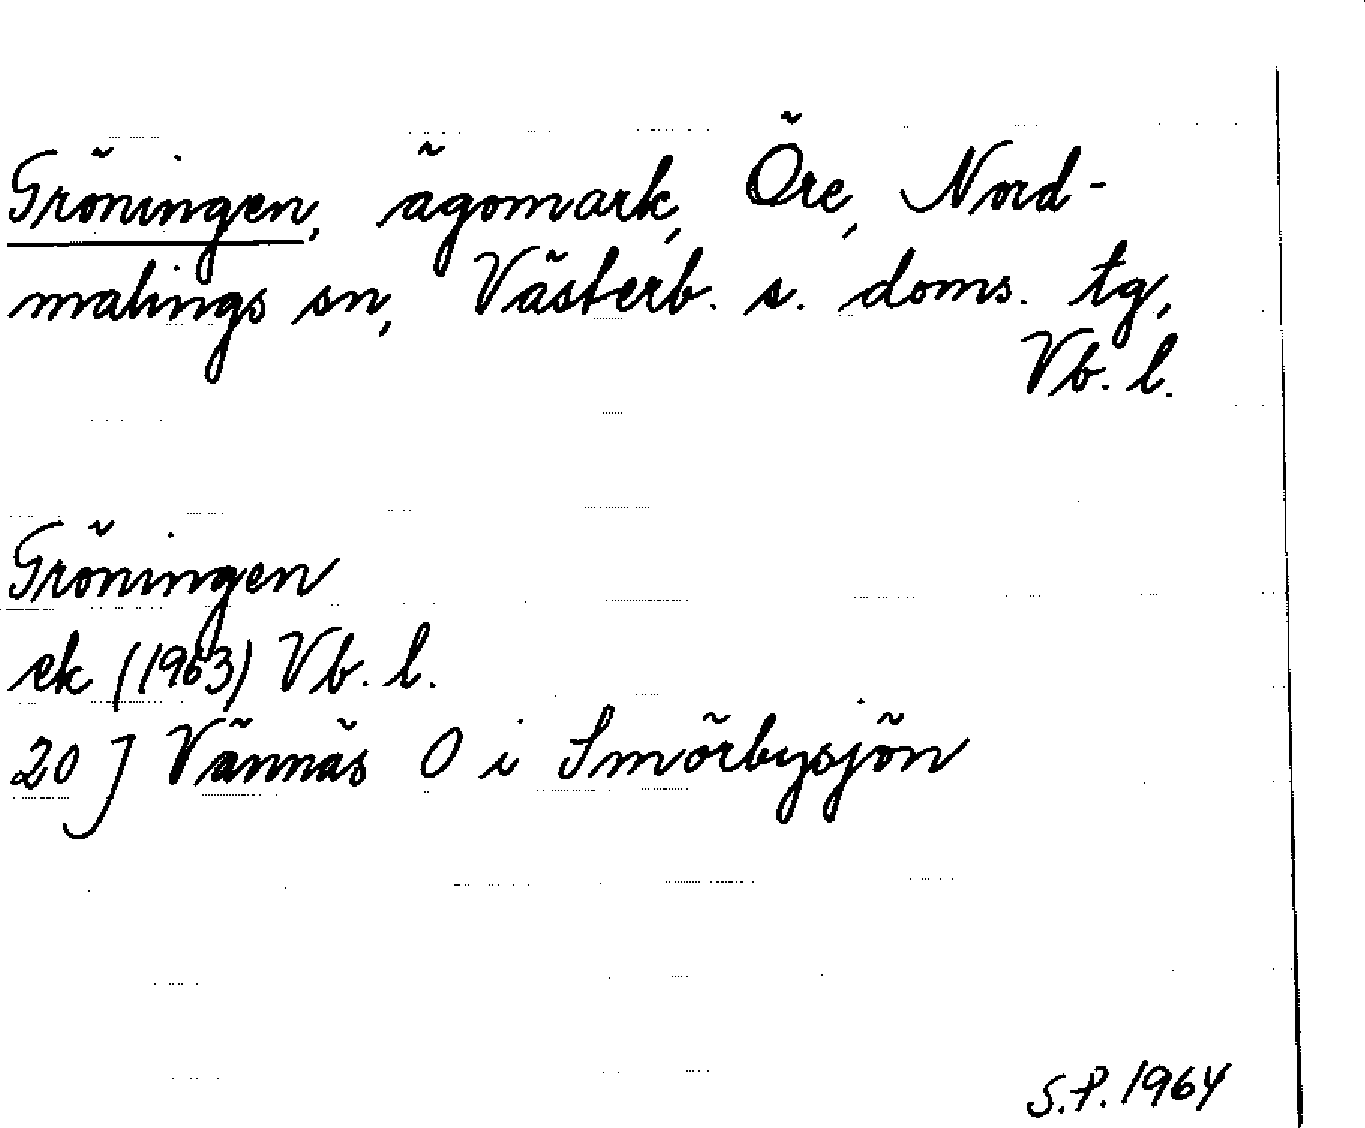 Gröningen, ägomark, Öre, Nord-
malings sn, Västerb. s. doms. tg,
Vb. l.
Gröningen
ek (1963) Vb. l.
20 J Vännäs O i Smörbysjön
S.P. 1964